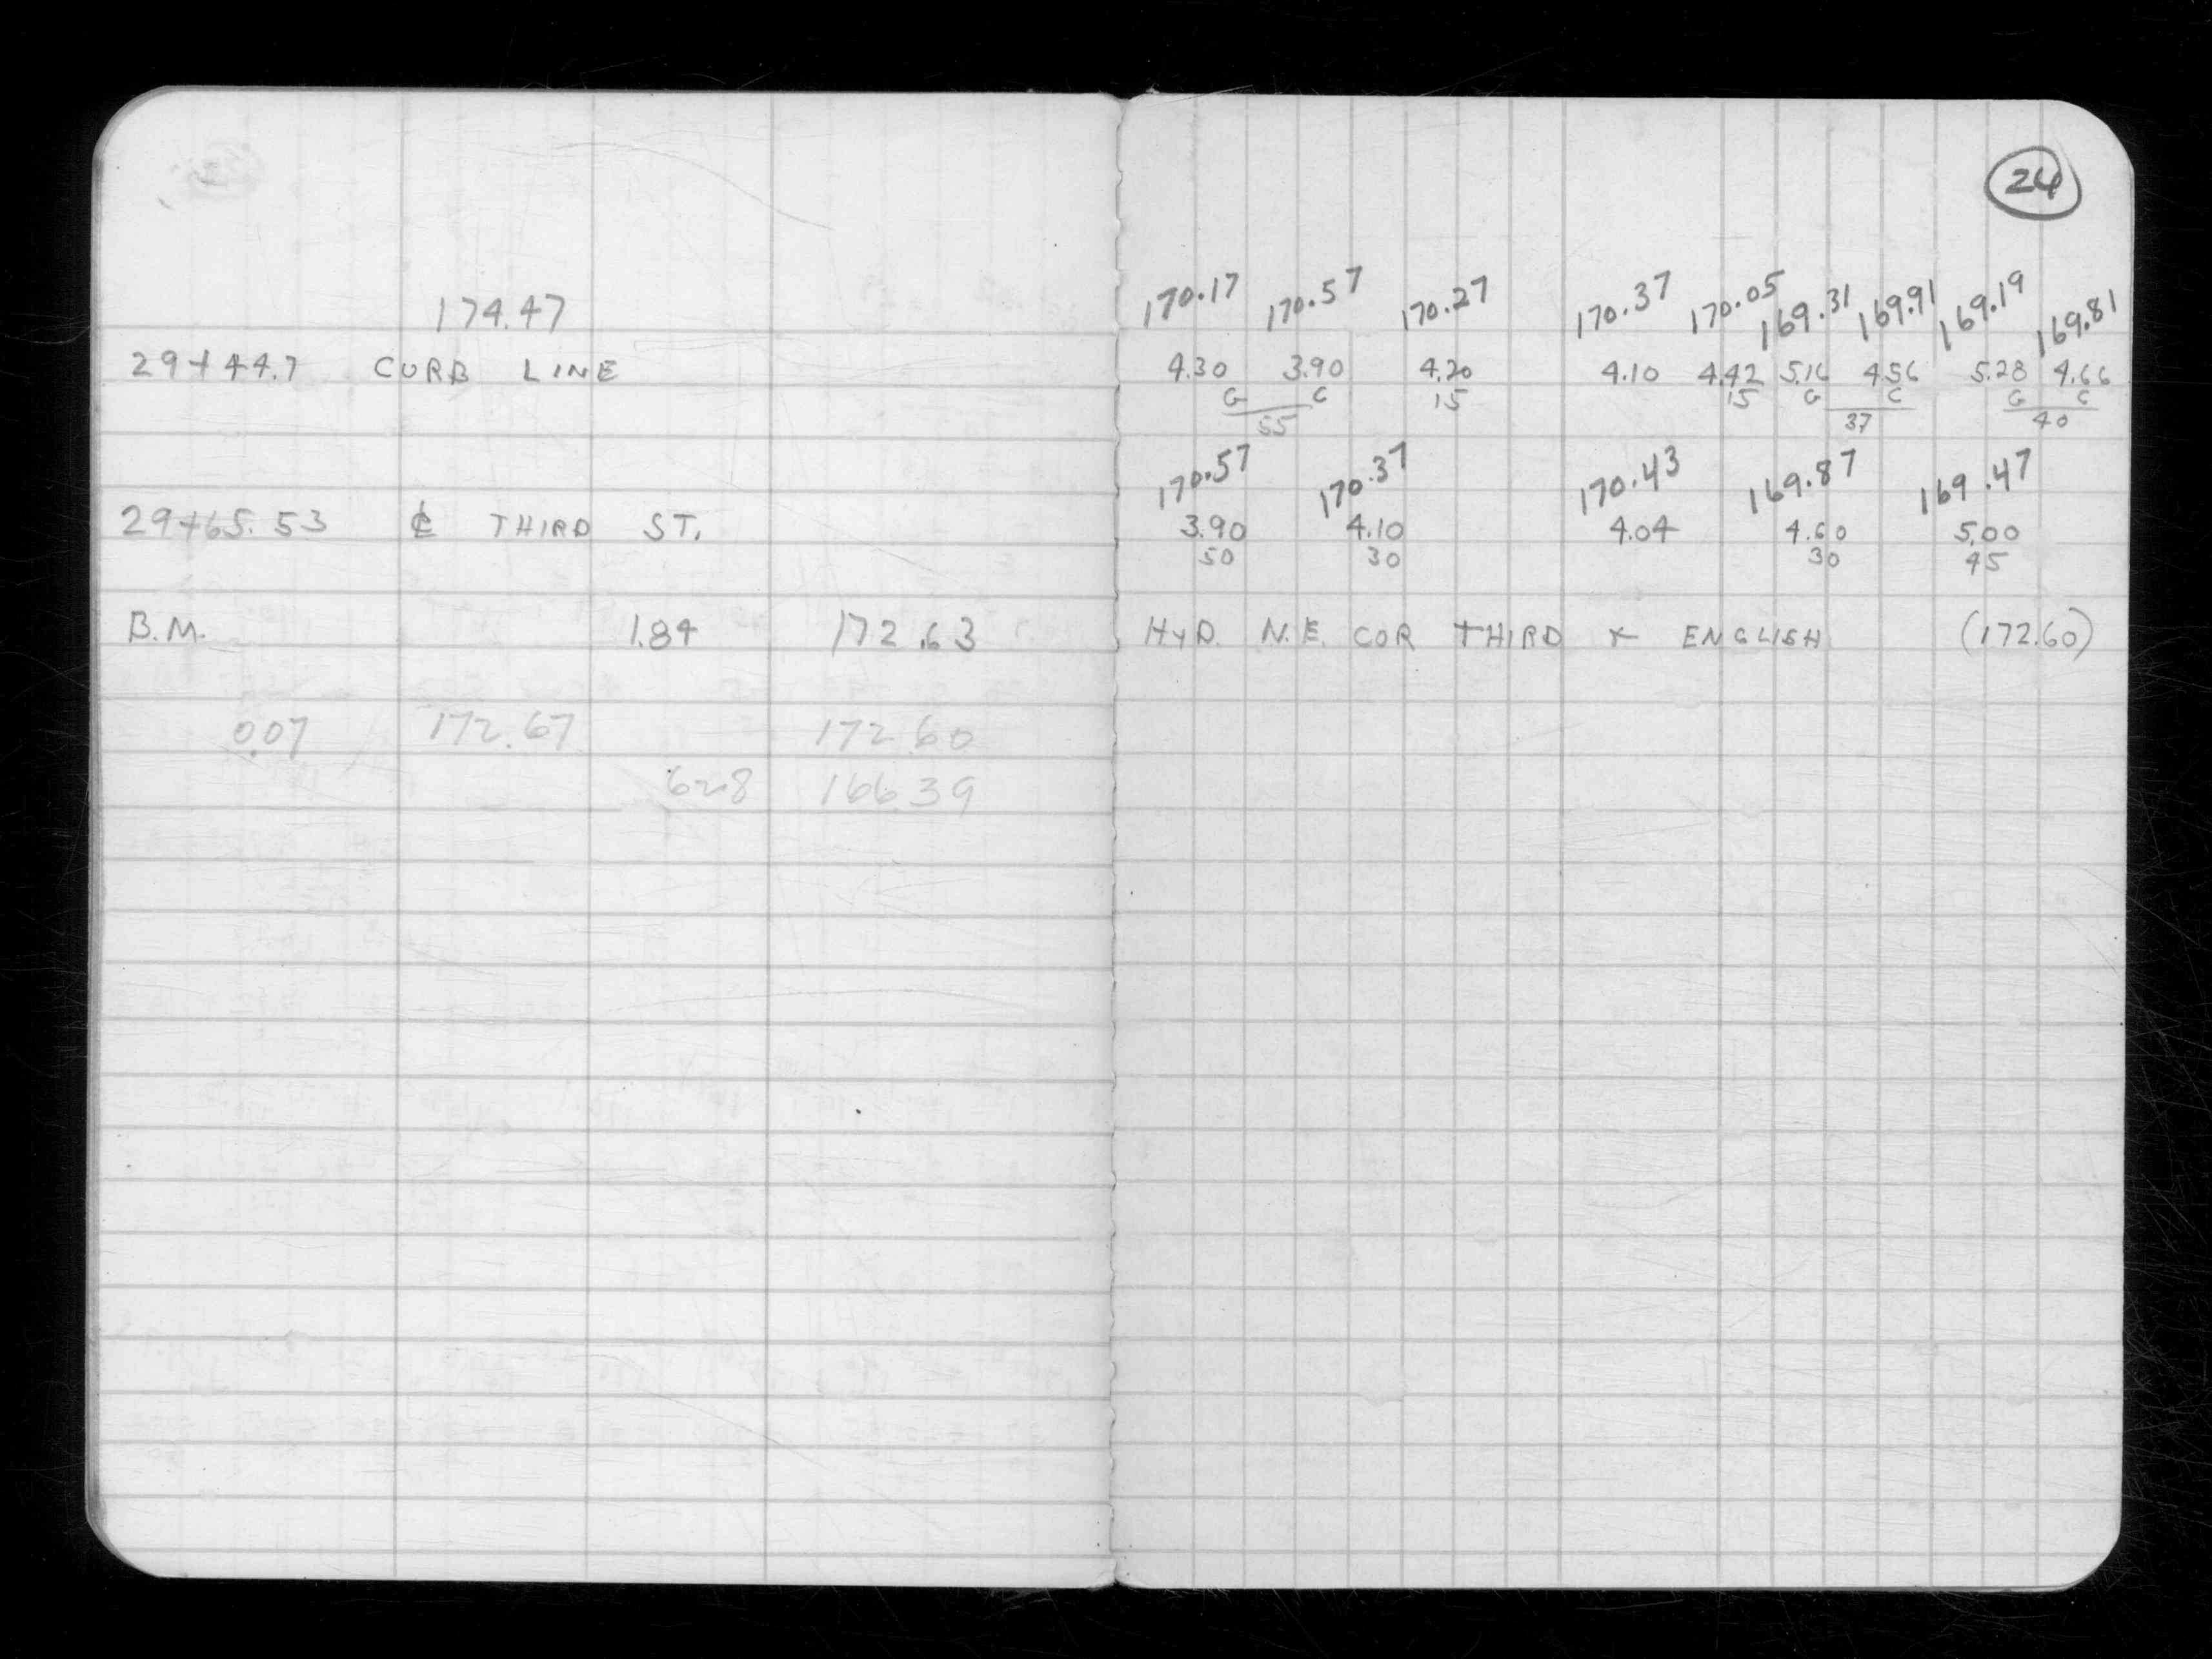 24
174.47 170.17 170.57 170.27 170.37 170.05 169.31 169.91 169.19 169.81
29+44.7 CURB LINE 4.30 3.90 4.20 4.10 4.42 5.16 4.56 5.28 4.66
G C 15 15 G C G C
55 37 40
170.57 170.37 170.43 169.87 169.47
29+65.53 ℄ THIRD ST. 3.90 4.10 4.04 4.60 5.00
50 30 30 45
B.M. 1.84 172.63 HYD. N.E. COR THIRD + ENGLISH (172.60)
0.07 172.67 172.60
6.28 166.39